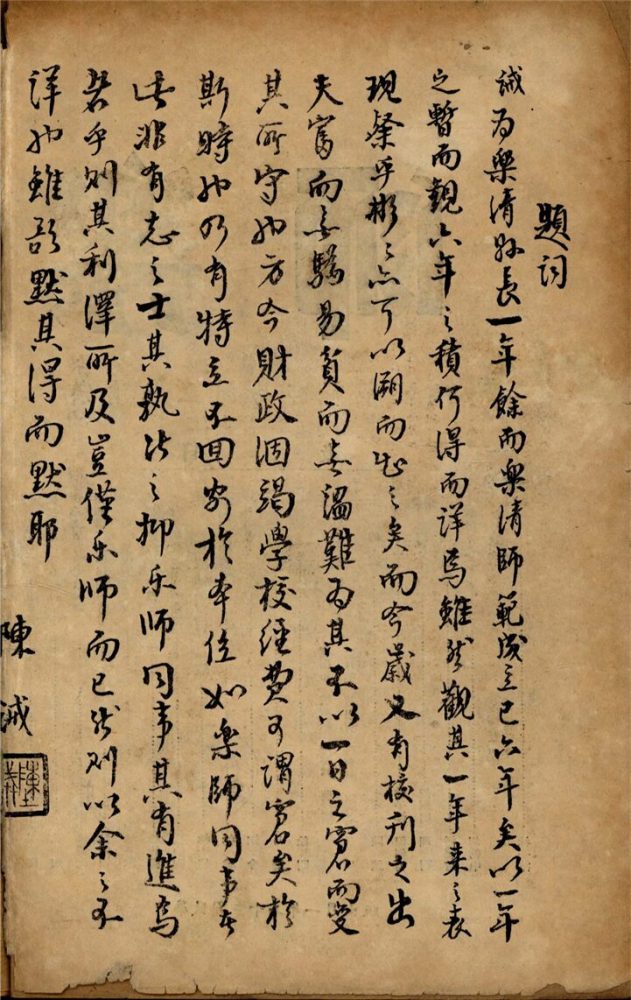 題詞
誠為樂清縣長一年餘而樂清師範成立已六年矣以一年
之暫而觀六年之積何得而詳焉雖然觀其一年來之表
現粲乎彬之亦可以溯而知之矣而今歲又有校刊之出
夫富而無驕易貧而無謟難為其不以一日之窘而受
其所守也方今財政涸竭學校經費可謂窘矣於
斯時也乃有特立不回安於本位如樂師同事者
此非有志之士其孰能之抑乐師同事其有進焉
者乎則其利澤所及豈僅乐師而已然則以余之不
詳也雖欲默其得而默耶
陳誠